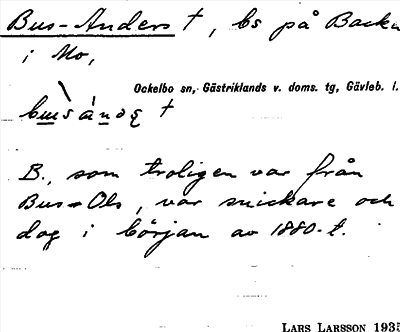 Bus-Anders †, bs på Backa
i Mo,
Ockelbo sn, Gästriklands v. doms. tg, Gävleb. l.
†
B., som troligen var från
Bus-Ols, var snickare och
dog i början av 1880-t.
LARS LARSSON 1935